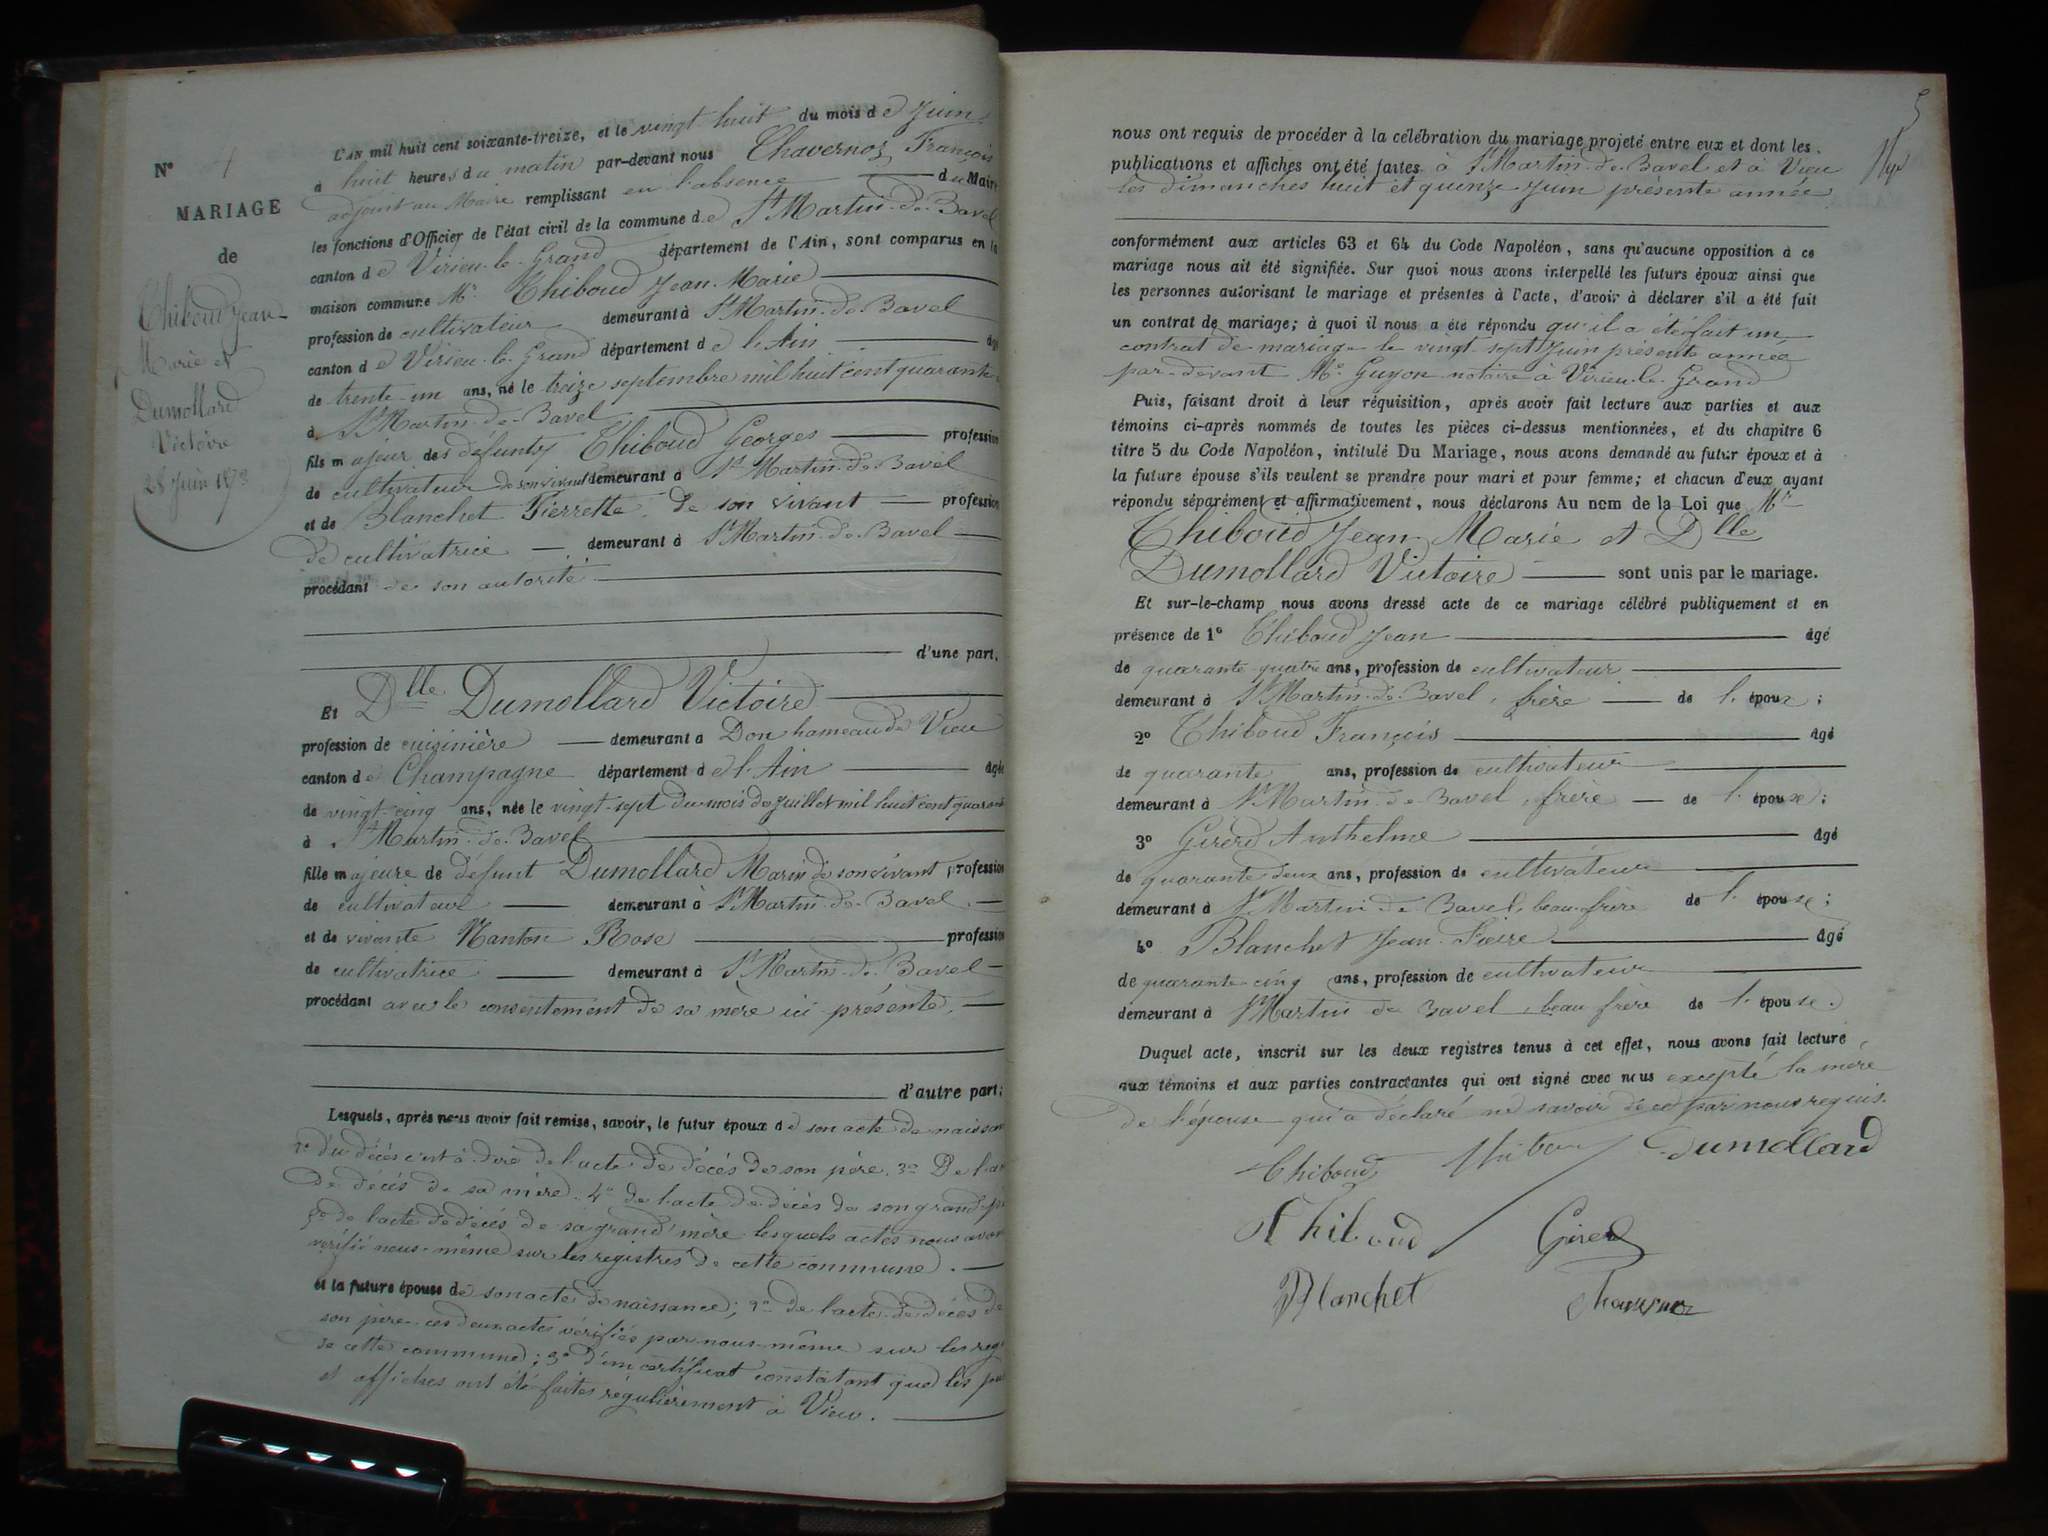 N° 4
MARIAGE
de
Thiboud Jean
Marie et
Dumollard
Victoire
28 Juin 1873
L'AN mil huit cent soixante-treize, et le vingt huit du mois de Juin
à huit heures du matin par-devant nous Chavernoz François
adjoint au Maire remplissant en l'absence du Maire
les fonctions d'Officier de l'état civil de la commune de St Martin-de-Bavel
canton de Virieu-le-Grand département de l'Ain, sont comparus en la
maison commune Mr Thiboud Jean-Marie
profession de cultivateur demeurant à St Martin-de-Bavel
canton de Virieu-le-Grand département de l'Ain âgé
de trente-un ans, né le treize septembre mil huit cent quarante
à St Martin-de-Bavel
fils majeur des défunts Thiboud Georges profession
de cultivateur de son vivant demeurant à St Martin-de-Bavel
et de Blanchet Pierrette de son vivant profession
de cultivatrice demeurant à St Martin-de-Bavel
procédant de son autorité
d'une part.
Et Dlle Dumollard Victoire
profession de cuisinière demeurant à Don hameau de Vieu
canton de Champagne département de l'Ain âgée
de vingt-cinq ans, née le vingt-sept du mois de Juillet mil huit cent quarante
à St Martin-de-Bavel
fille majeure de défunt Dumollard Marin de son vivant profession
de cultivateur demeurant à St Martin-de-Bavel
et de vivante Nanton Rose profession
de cultivatrice demeurant à St Martin-de-Bavel
procédant avec le consentement de sa mère ici présente,
d'autre part;
Lesquels, après nous avoir fait remise, savoir, le futur époux de son acte de naissance
2° du décès c'est à dire de l'acte de décès de son père. 3° De l'acte
de décès de sa mère. 4° de l'acte de décès de son grand-père
5° de l'acte de décès de sa grand'mère lesquels actes nous avons
vérifié nous-même sur les registres de cette commune.
et la future épouse de son acte de naissance; 2° de l'acte de décès de
son père ces deux actes vérifiés par nous-même sur les reg
de cette commune; 3° d'un certificat constatant que les pu
et affiches ont été faites régulièrement à Vieu.
5
nous ont requis de procéder à la célébration du mariage projeté entre eux et dont les
publications et affiches ont été faites à St Martin-de-Bavel et à Vieu
les dimanches huit et quinze Juin présente année
conformément aux articles 63 et 64 du Code Napoléon, sans qu'aucune opposition à ce
mariage nous ait été signifiée. Sur quoi nous avons interpellé les futurs époux ainsi que
les personnes autorisant le mariage et présentes à l'acte, d'avoir à déclarer s'il a été fait
un contrat de mariage; à quoi il nous a été répondu qu'il a été fait un
contrat de mariage le vingt-sept Juin présente année
par-devant Me Guyon notaire à Virieu-le-Grand
Puis, faisant droit à leur réquisition, après avoir fait lecture aux parties et aux
témoins ci-après nommés de toutes les pièces ci-dessus mentionnées, et du chapitre 6
titre 5 du Code Napoléon, intitulé Du Mariage, nous avons demandé au futur époux et à
la future épouse s'ils veulent se prendre pour mari et pour femme; et chacun d'eux ayant
répondu séparément et affirmativement, nous déclarons Au nom de la Loi que Mr
Thiboud Jean-Marie et Dlle
Dumollard Victoire sont unis par le mariage.
Et sur-le-champ nous avons dressé acte de ce mariage célébré publiquement et en
présence de 1° Thiboud Jean âgé
de quarante-quatre ans, profession de cultivateur
demeurant à St Martin-de-Bavel, frère de l'époux;
2° Thiboud François âgé
de quarante ans, profession de cultivateur
demeurant à St Martin-de-Bavel, frère de l'épouse;
3° Girerd Anthelme âgé
de quarante deux ans, profession de cultivateur
demeurant à St Martin de Bavel, beau-frère de l'épouse;
4° Blanchet Jean-Pierre âgé
de quarante-cinq ans, profession de cultivateur
demeurant à St Martin de Bavel, beau frère de l'épouse.
Duquel acte, inscrit sur les deux registres tenus à cet effet, nous avons fait lecture
aux témoins et aux parties contractantes qui ont signé avec nous excepté la mère
de l'épouse qui a déclaré ne savoir de ce par nous requis.
Thiboud Thiboud Dumollard
Thiboud Girerd
Blanchet Chavernoz